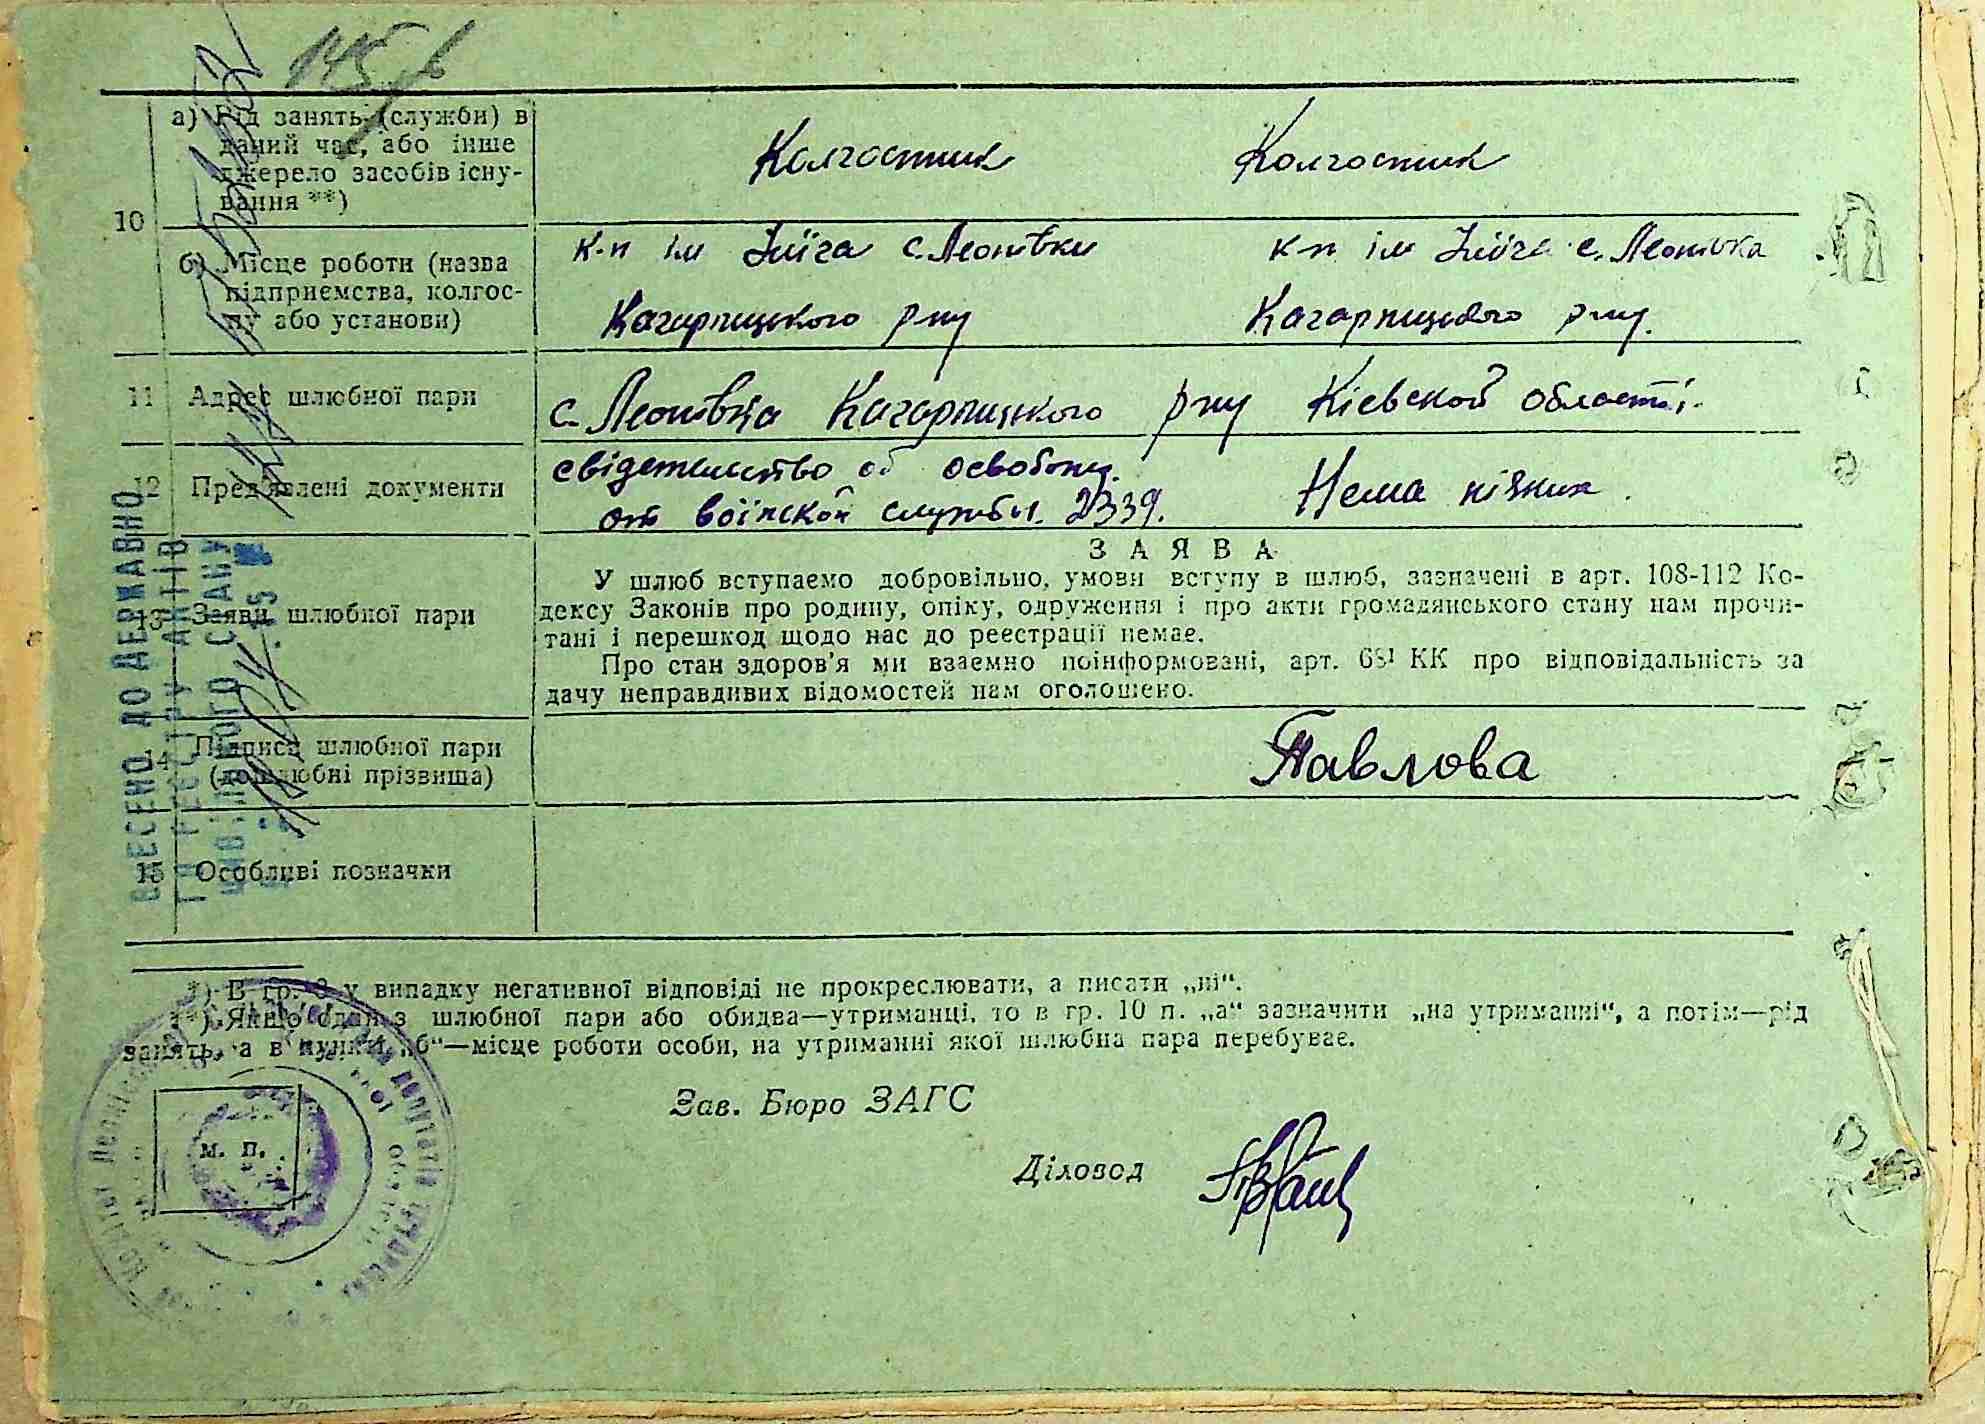 145
10
а) Рід занять (служби) в
даний час, або інше
джерело засобів існу-
вання **)
Колгоспник Колгоспник
б) Місце роботи (назва
підприємства, колгос-
пу або установи)
к-п ім Ілліча с. Леонівки к-п ім Ілліча с. Леонівка
Кагарлицького р-ну Кагарлицького р-ну.
11 Адрес шлюбної пари
с. Леонівка Кагарлицького р-ну Кіевской області.
12 Пред'явлені документи
свідетельство об освобожд.
от воїнской службы. 2339. Нема ніяких.
13 Заяви шлюбної пари
ЗАЯВА
У шлюб вступаємо добровільно, умови вступу в шлюб, зазначені в арт. 108-112 Ко-
дексу Законів про родину, опіку, одруження і про акти громадянського стану нам прочи-
тані і перешкод щодо нас до реєстрації немає.
Про стан здоров'я ми взаємно поінформовані, арт. 68¹ КК про відповідальність за
дачу неправдивих відомостей нам оголошено.
14 Підписи шлюбної пари
(дошлюбні прізвища)
Павлова
15 Особливі позначки
ВНЕСЕНО ДО ДЕРЖАВНО
ГО РЕЄСТРУ АКТІВ
ЦИВІЛЬНОГО СТАНУ
*) В гр. 8 у випадку негативної відповіді не прокреслювати, а писати „ні“.
**) Якщо один з шлюбної пари або обидва—утриманці, то в гр. 10 п. „а“ зазначити „на утриманні“, а потім—рід
занять, а в пункті „б“—місце роботи особи, на утриманні якої шлюбна пара перебуває.
Зав. Бюро ЗАГС
м. п.
Діловод